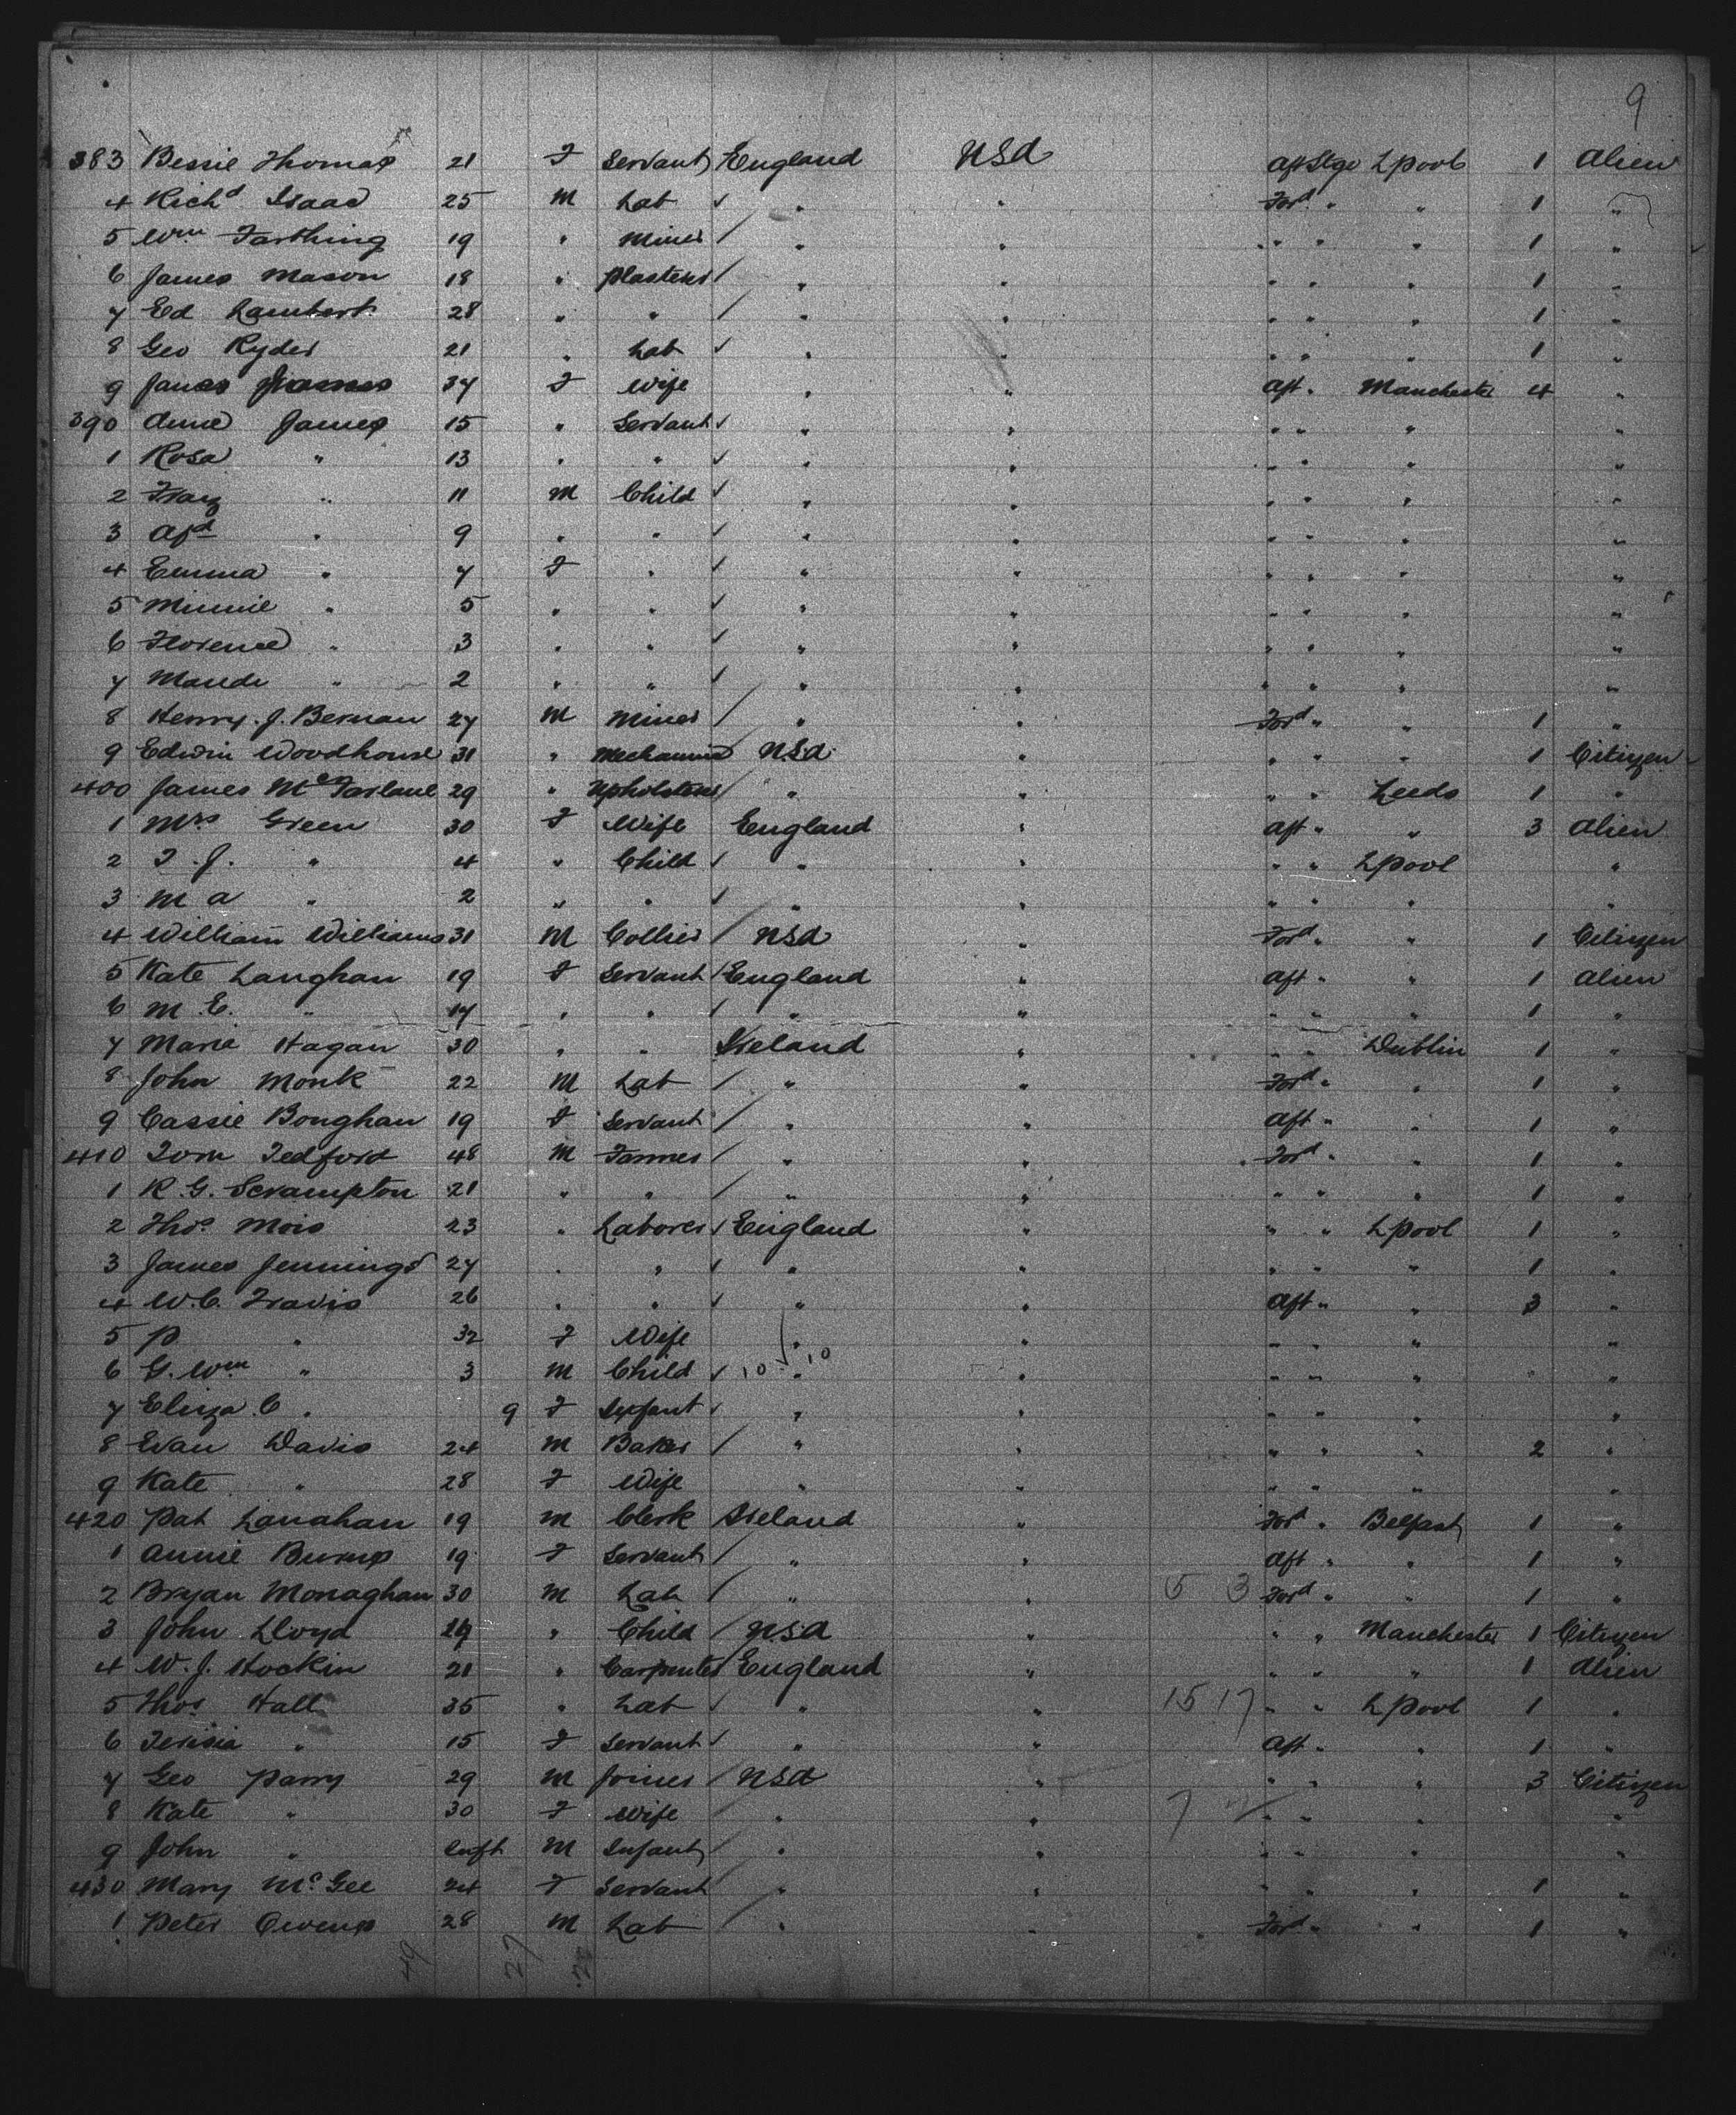 9
383 Bessie Thomas 21 F Servant England USA Aft Stge Lpool 1 Alien
4 Richd Isaac 25 M Lab ✓ " " Ford " " 1 "
5 Wm Farthing 19 " Miner / " " " " " 1 "
6 James Mason 18 " Plasterer / " " " " " 1 "
7 Ed Lambert 28 " " / " " " " " 1 "
8 Geo Ryder 21 " Lab ✓ " " " " " 1 "
9 James 34 F Wife " " Aft " Manchester 4 "
390 Anne James 15 " Servant ✓ " " " " " "
1 Rosa " 13 " " ✓ " " " " " "
2 " 11 M Child ✓ " " " " " "
3 Afd " 9 " " ✓ " " " " " "
4 Emma " 7 F " ✓ " " " " " "
5 Minnie " 5 " " ✓ " " " " " "
6 Florence " 3 " " ✓ " " " " " "
7 Maude " 2 " " ✓ " " " " " "
8 Henry J. Bernan 27 M Miner / " " Ford " " 1 "
9 Edwin Woodhouse 31 " Mechanic USA " " " " 1 Citizen
400 James McFarlane 29 " Upholsterer / " " " " Leeds 1 "
1 Mrs Green 30 F Wife England " Aft " " 3 Alien
2 T. J. " 4 " Child ✓ " " " " Lpool "
3 M A " 2 " " ✓ " " " " " "
4 William Williams 31 M Collier / USA " Ford " " 1 Citizen
5 Kate Langhan 19 F Servant / England " Aft " " 1 Alien
6 M. E. " 17 " " / " " " " " 1 "
7 Marie Hagan 30 " " Ireland " " " Dublin 1 "
8 John Monk 22 M Lab / " " Ford " " 1 "
9 Cassie Bonghan 19 F Servant / " " Aft " " 1 "
410 Tom Tedford 48 M Farmer / " " Ford " " 1 "
1 R. G. Scrampton 21 " " / " " " " " 1 "
2 Thos Mois 23 " Laborer ✓ England " " " Lpool 1 "
3 James Jennings 27 " " ✓ " " " " " 1 "
4 W. C. Travis 26 " " ✓ " " Aft " " 3 "
5 P " 32 F Wife " " " " " "
6 G. Wm " 3 M Child ✓ 10 ✓ 10 " " " " " "
7 Eliza C " 9 F Infant ✓ " " " " " "
8 Evan Davis 24 M Baker / " " " " " 2 "
9 Kate " 28 F Wife " " " " " "
420 Pat Lanahan 19 M Clerk Ireland " Ford " Belfast 1 "
1 Annie Burns 19 F Servant / " " Aft " " 1 "
2 Bryan Monaghan 30 M Lab / " " 5 3 Ford " " 1 "
3 John Lloyd 29 " Child / USA " " " Manchester 1 Citizen
4 W. J. Hockin 21 " Carpenter England " " " " 1 Alien
5 Thos Hall 35 " Lab ✓ " " 15 17 " " Lpool 1 "
6 Terisia " 15 F Servant ✓ " " Aft " " 1 "
7 Geo Parry 29 M Joiner / USA " " " " 3 Citizen
8 Kate " 30 F Wife " " 7 " " " "
9 John " Inft M Infant / " " " " " "
430 Mary McGee 24 F Servant / " " " " " 1 "
1 Peter Owens 28 M Lab / " " Ford " " 1 "
49 27